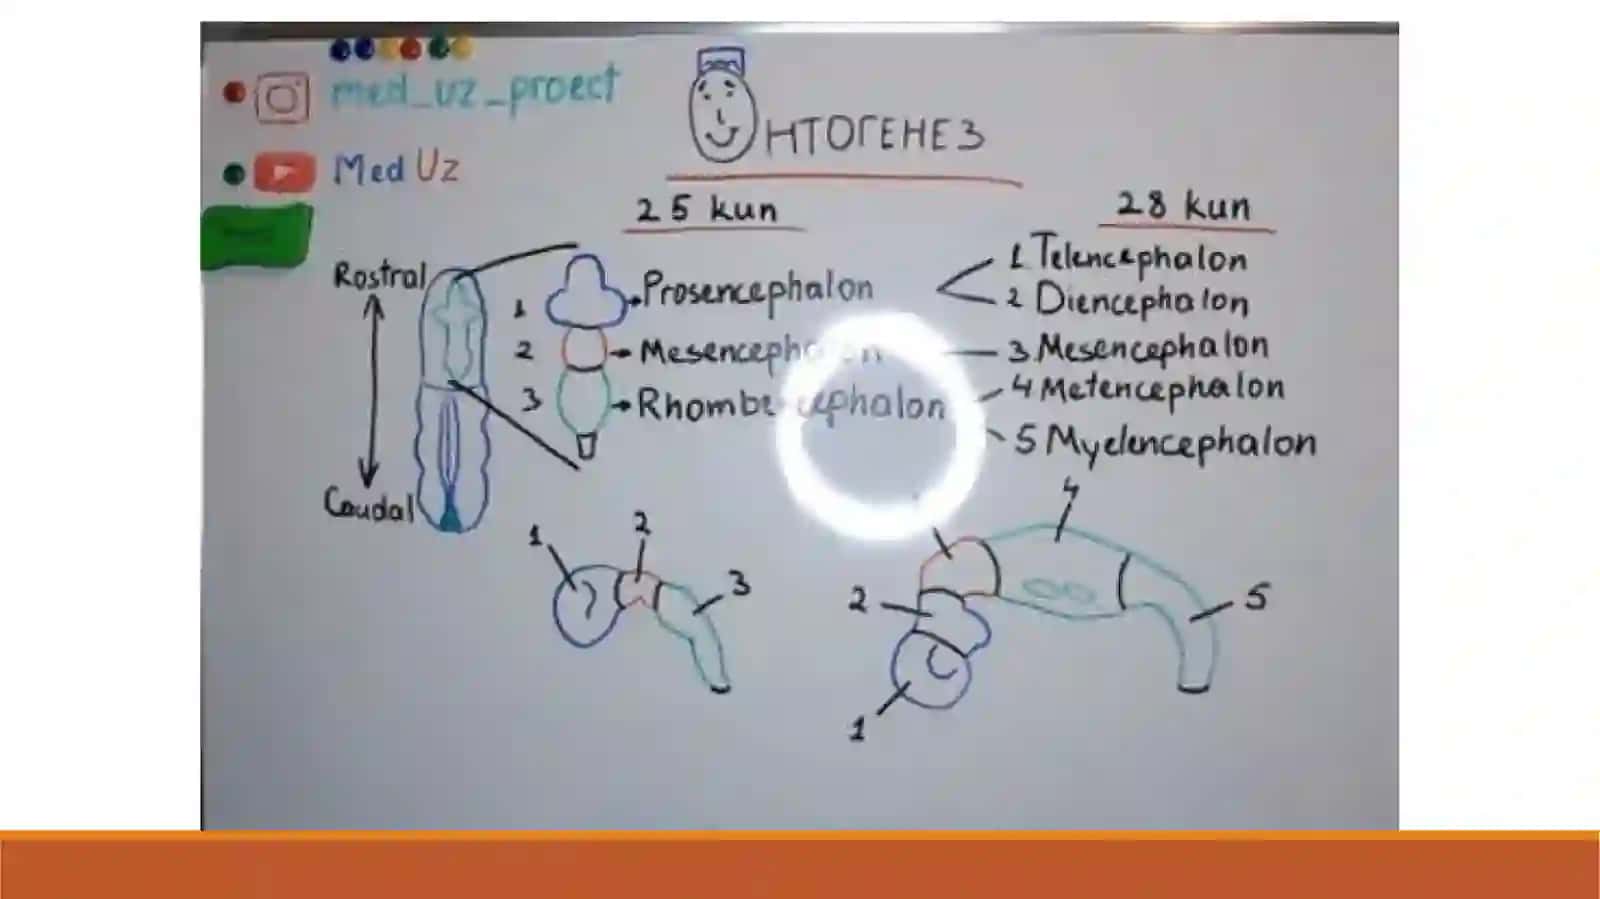 med_uz_proect
Med Uz
НТОГЕНЕЗ
25 kun
28 kun
Rostral
Caudal
1
2
3
Prosencephalon
Mesencephalon
Rhombencephalon
1 Telencephalon
2 Diencephalon
3 Mesencephalon
4 Metencephalon
5 Myelencephalon
1
2
3
4
2
5
1